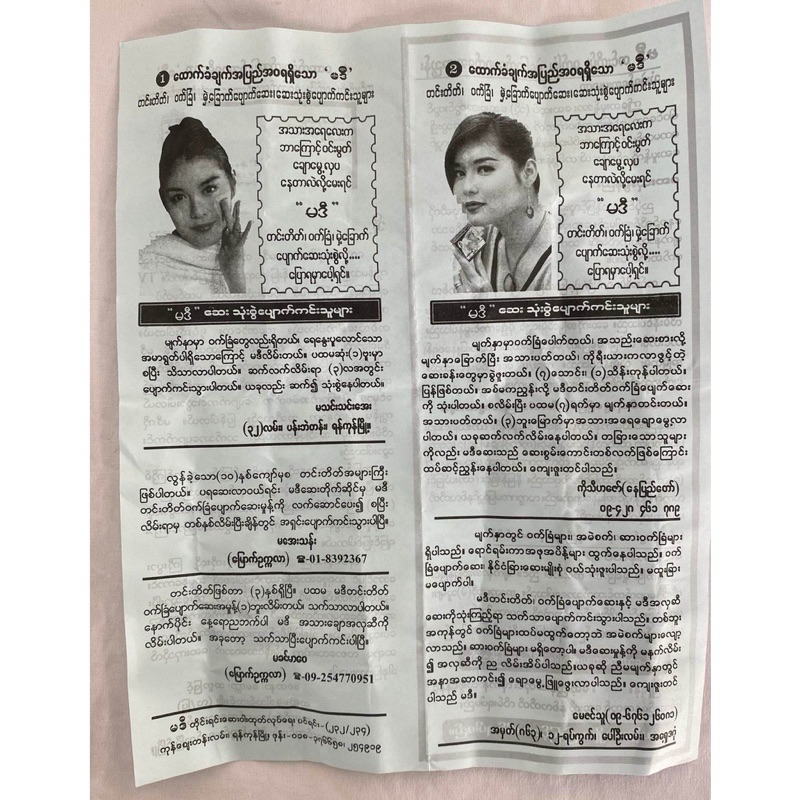 ❶ ထောက်ခံချက်အပြည့်အဝရရှိသော ‘မဒီ’
တင်းတိတ်၊ ဝက်ခြံ၊ မှဲ့ခြောက်ပျောက်ဆေး၊ ဆေးသုံးစွဲပျောက်ကင်းသူများ
အသားအရေလေးက
ဘာကြောင့်ဝင်းမွတ်
ချောမွေ့လှပ
နေတာလဲလို့မေးရင်
“မဒီ”
တင်းတိတ်၊ ဝက်ခြံ၊ မှဲ့ခြောက်
ပျောက်ဆေးသုံးစွဲလို့....
ပြောရမှာပေါ့ရှင်။
“မဒီ” ဆေး သုံးစွဲပျောက်ကင်းသူများ
မျက်နှာမှာ ဝက်ခြံတွေလည်းရှိတယ်၊ ရေနွေးပူလောင်သော
အမာရွတ်ပါရှိသောကြောင့် မဒီလိမ်းတယ်။ ပထမဆုံး(၁)ဗူးမှာ
စပြီး သိသာလာပါတယ်။ ဆက်လက်လိမ်းရာ (၃)လအတွင်း
ပျောက်ကင်းသွားပါတယ်။ ယခုလည်း ဆက်၍ သုံးစွဲနေပါတယ်။
မသင်းသင်းအေး
(၃၂)လမ်း၊ ပန်းဘဲတန်း၊ ရန်ကုန်မြို့။
လွန်ခဲ့သော(၁၀)နှစ်ကျော်မှစ တင်းတိတ်အများကြီး
ဖြစ်ပါတယ်။ ပရဆေးလာဝယ်ရင်း မဒီဆေးတိုက်ဆိုင်မှ မဒီ
တင်းတိတ်ဝက်ခြံပျောက်ဆေးမှုန့်ကို လက်ဆောင်ပေး၍ စပြီး
လိမ်းရာမှ တစ်နှစ်လိမ်းပြီးချိန်တွင် အရှင်းပျောက်ကင်းသွားပါပြီ။
မအေးသန်း
(မြောက်ဥက္ကလာ) ☎-01-8392367
တင်းတိတ်ဖြစ်တာ (၃)နှစ်ရှိပြီ။ ပထမ မဒီတင်းတိတ်
ဝက်ခြံပျောက်ဆေးအမှုန့်(၁)ဘူးလိမ်းတယ်၊ သက်သာလာပါတယ်။
နောက်ပိုင်း နေ့ရောညဘက်ပါ မဒီ အသားချောအလှဆီကို
လိမ်းပါတယ်။ အခုတော့ သက်သာပြီးပျောက်ကင်းပါပြီ။
မခင်မာဝေ
(မြောက်ဥက္ကလာ) ☎-09-254770951
မဒီ တိုင်းရင်းဆေးဝါးထုတ်လုပ်ရေး၊ ပင်ရင်း-(၂၃၂/၂၃၄)
ကုန်ဈေးတန်းလမ်း၊ ရန်ကုန်မြို့၊ ဖုန်း-
❷ ထောက်ခံချက်အပြည့်အဝရရှိသော ‘မဒီ’
တင်းတိတ်၊ ဝက်ခြံ၊ မှဲ့ခြောက်ပျောက်ဆေး၊ဆေးသုံးစွဲပျောက်ကင်းသူများ
အသားအရေလေးက
ဘာကြောင့်ဝင်းမွတ်
ချောမွေ့လှပ
နေတာလဲလို့မေးရင်
“မဒီ”
တင်းတိတ်၊ ဝက်ခြံ၊ မှဲ့ခြောက်
ပျောက်ဆေးသုံးစွဲလို့....
ပြောရမှာပေါ့ရှင်။
“မဒီ” ဆေး သုံးစွဲပျောက်ကင်းသူများ
မျက်နှာမှာဝက်ခြံပေါက်တယ်၊ အသည်းဆေးစားလို့
မျက်နှာခြောက်ပြီး အသားပတ်တယ်။ ကိုရီးယားကလာခွင့်တဲ့
ဆေးစန်းတွေမှာခွဲဖူးတယ်။ (၇)သောင်း၊ (၁)သိန်းကုန်ပါတယ်။
ပြန်ဖြစ်တယ်။ အစ်မကညွှန်းလို့ မဒီတင်းတိတ်ဝက်ခြံပျောက်ဆေး
ကို သုံးပါတယ်။ စလိမ်းပြီး ပထမ(၇)ရက်မှာ မျက်နှာတင်းတယ်။
အသားပတ်တယ်။ (၃)ဘူးမြောက်မှာအသားအရေချောမွေ့လာ
ပါတယ်။ ယခုဆက်လက်လိမ်းနေပါတယ်။ တခြားသောသူများ
ကိုလည်း မဒီဆေးသည် ဆေးစွမ်းကောင်းတစ်လက်ဖြစ်ကြောင်း
ထပ်ဆင့်ညွှန်းနေပါတယ်။ ကျေးဇူးတင်ပါသည်။
ကိုသီဟဇော် (နေပြည်တော်)
၀၉-၄၂၀ ၄၆၁ ၇၈၉
မျက်နှာတွင် ဝက်ခြံများ၊ အမဲစက်၊ ဆားဝက်ခြံများ
ရှိပါသည်။ ရောင်ရမ်းကာအဖုအပိန့်များ ထွက်နေပါသည်။ ဝက်
ခြံပျောက်ဆေး၊ နိုင်ငံခြားဆေးမျိုးစုံ ဝယ်သုံးဖူးပါသည်။ မထူးခြား
မပျောက်ပါ။
မဒီတင်းတိတ်၊ ဝက်ခြံပျောက်ဆေးနှင့် မဒီအလှဆီ
ဆေးကိုသုံးကြည့်ရာ သက်သာပျောက်ကင်းသွားပါသည်။ တစ်ဘူး
အကုန်တွင် ဝက်ခြံများထပ်မထွက်တော့ဘဲ အမဲစက်များလျော့
လာသည်။ ဆားဝက်ခြံများ မရှိတော့ပါ။ မဒီဆေးမှုန့်ကို မနက်လိမ်း
၍ အလှဆီကို ည လိမ်းအိပ်ပါသည်။ ယခုဆို ညီမမျက်နှာတွင်
အနာအဆာကင်း၍ ချောမွေ့ဖြူဖွေးလာပါသည်။ ကျေးဇူးတင်
ပါသည် မဒီ။
မေဇင်သူ (၀၉-၆၇၆၁၂၆၀၈၁)
အမှတ်(၈၆၃)၊ ၁၂-ရပ်ကွက်၊ ပေါ်ဦးလမ်း၊ အရှေ့ဒဂုံ